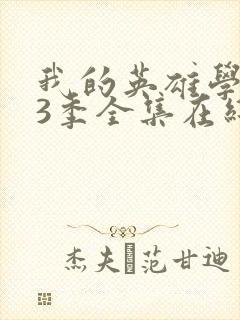 我的英雄學
3季全集在線
杰夫 范甘迪